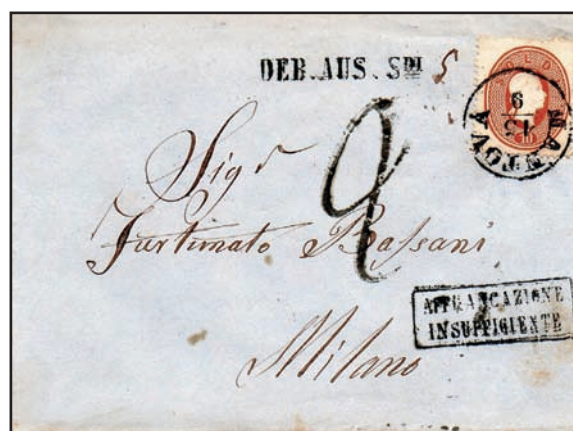 DEB. AUS. SDI 5
SOLDI
10
MANTOVA
13
9
Sigr
9
Fortunato Bassani
AFFRANCAZIONE
INSUFFIGIENTE
Milano